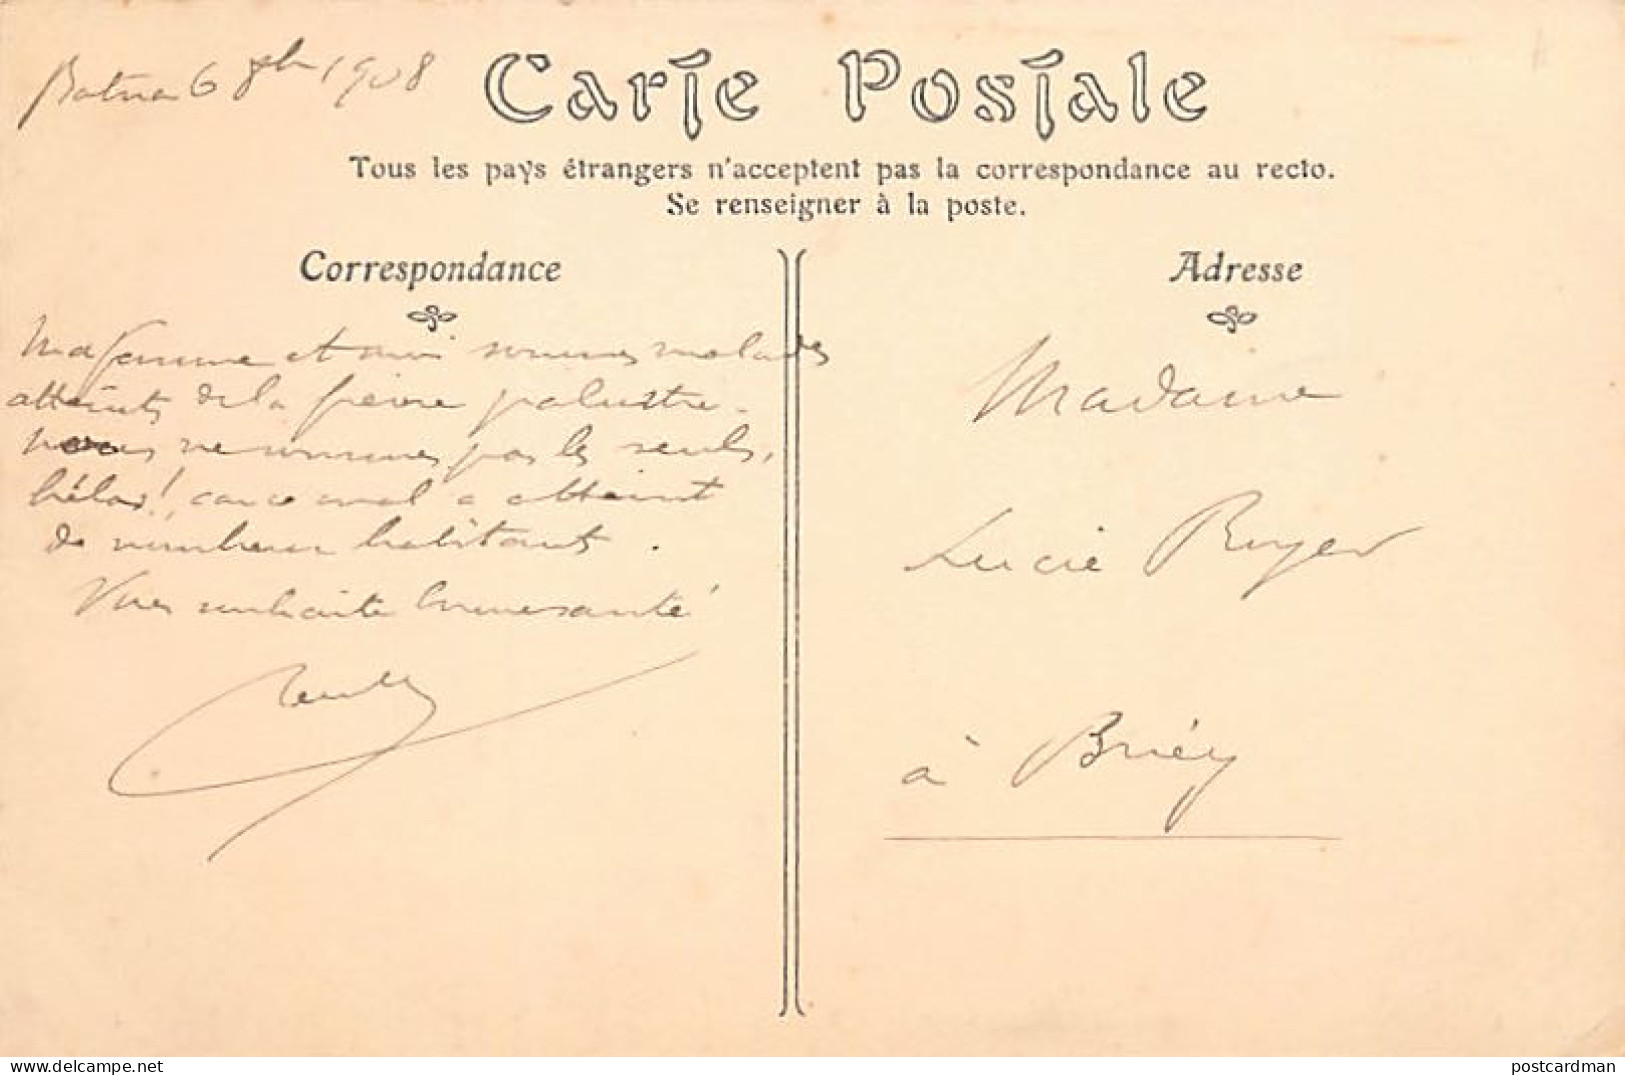 Batna 6 8bre 1908
Carte Postale
Tous les pays étrangers n'acceptent pas la correspondance au recto.
Se renseigner à la poste.
Correspondance
Adresse
Ma femme et moi sommes malades
atteints de la fièvre palustre.
nous ne sommes pas les seuls,
hélas! car ce mal a atteint
de nombreux habitants.
Vous souhaite bonne santé
Madame
Lucie Royer
à Briey
www.delcampe.net
postcardman